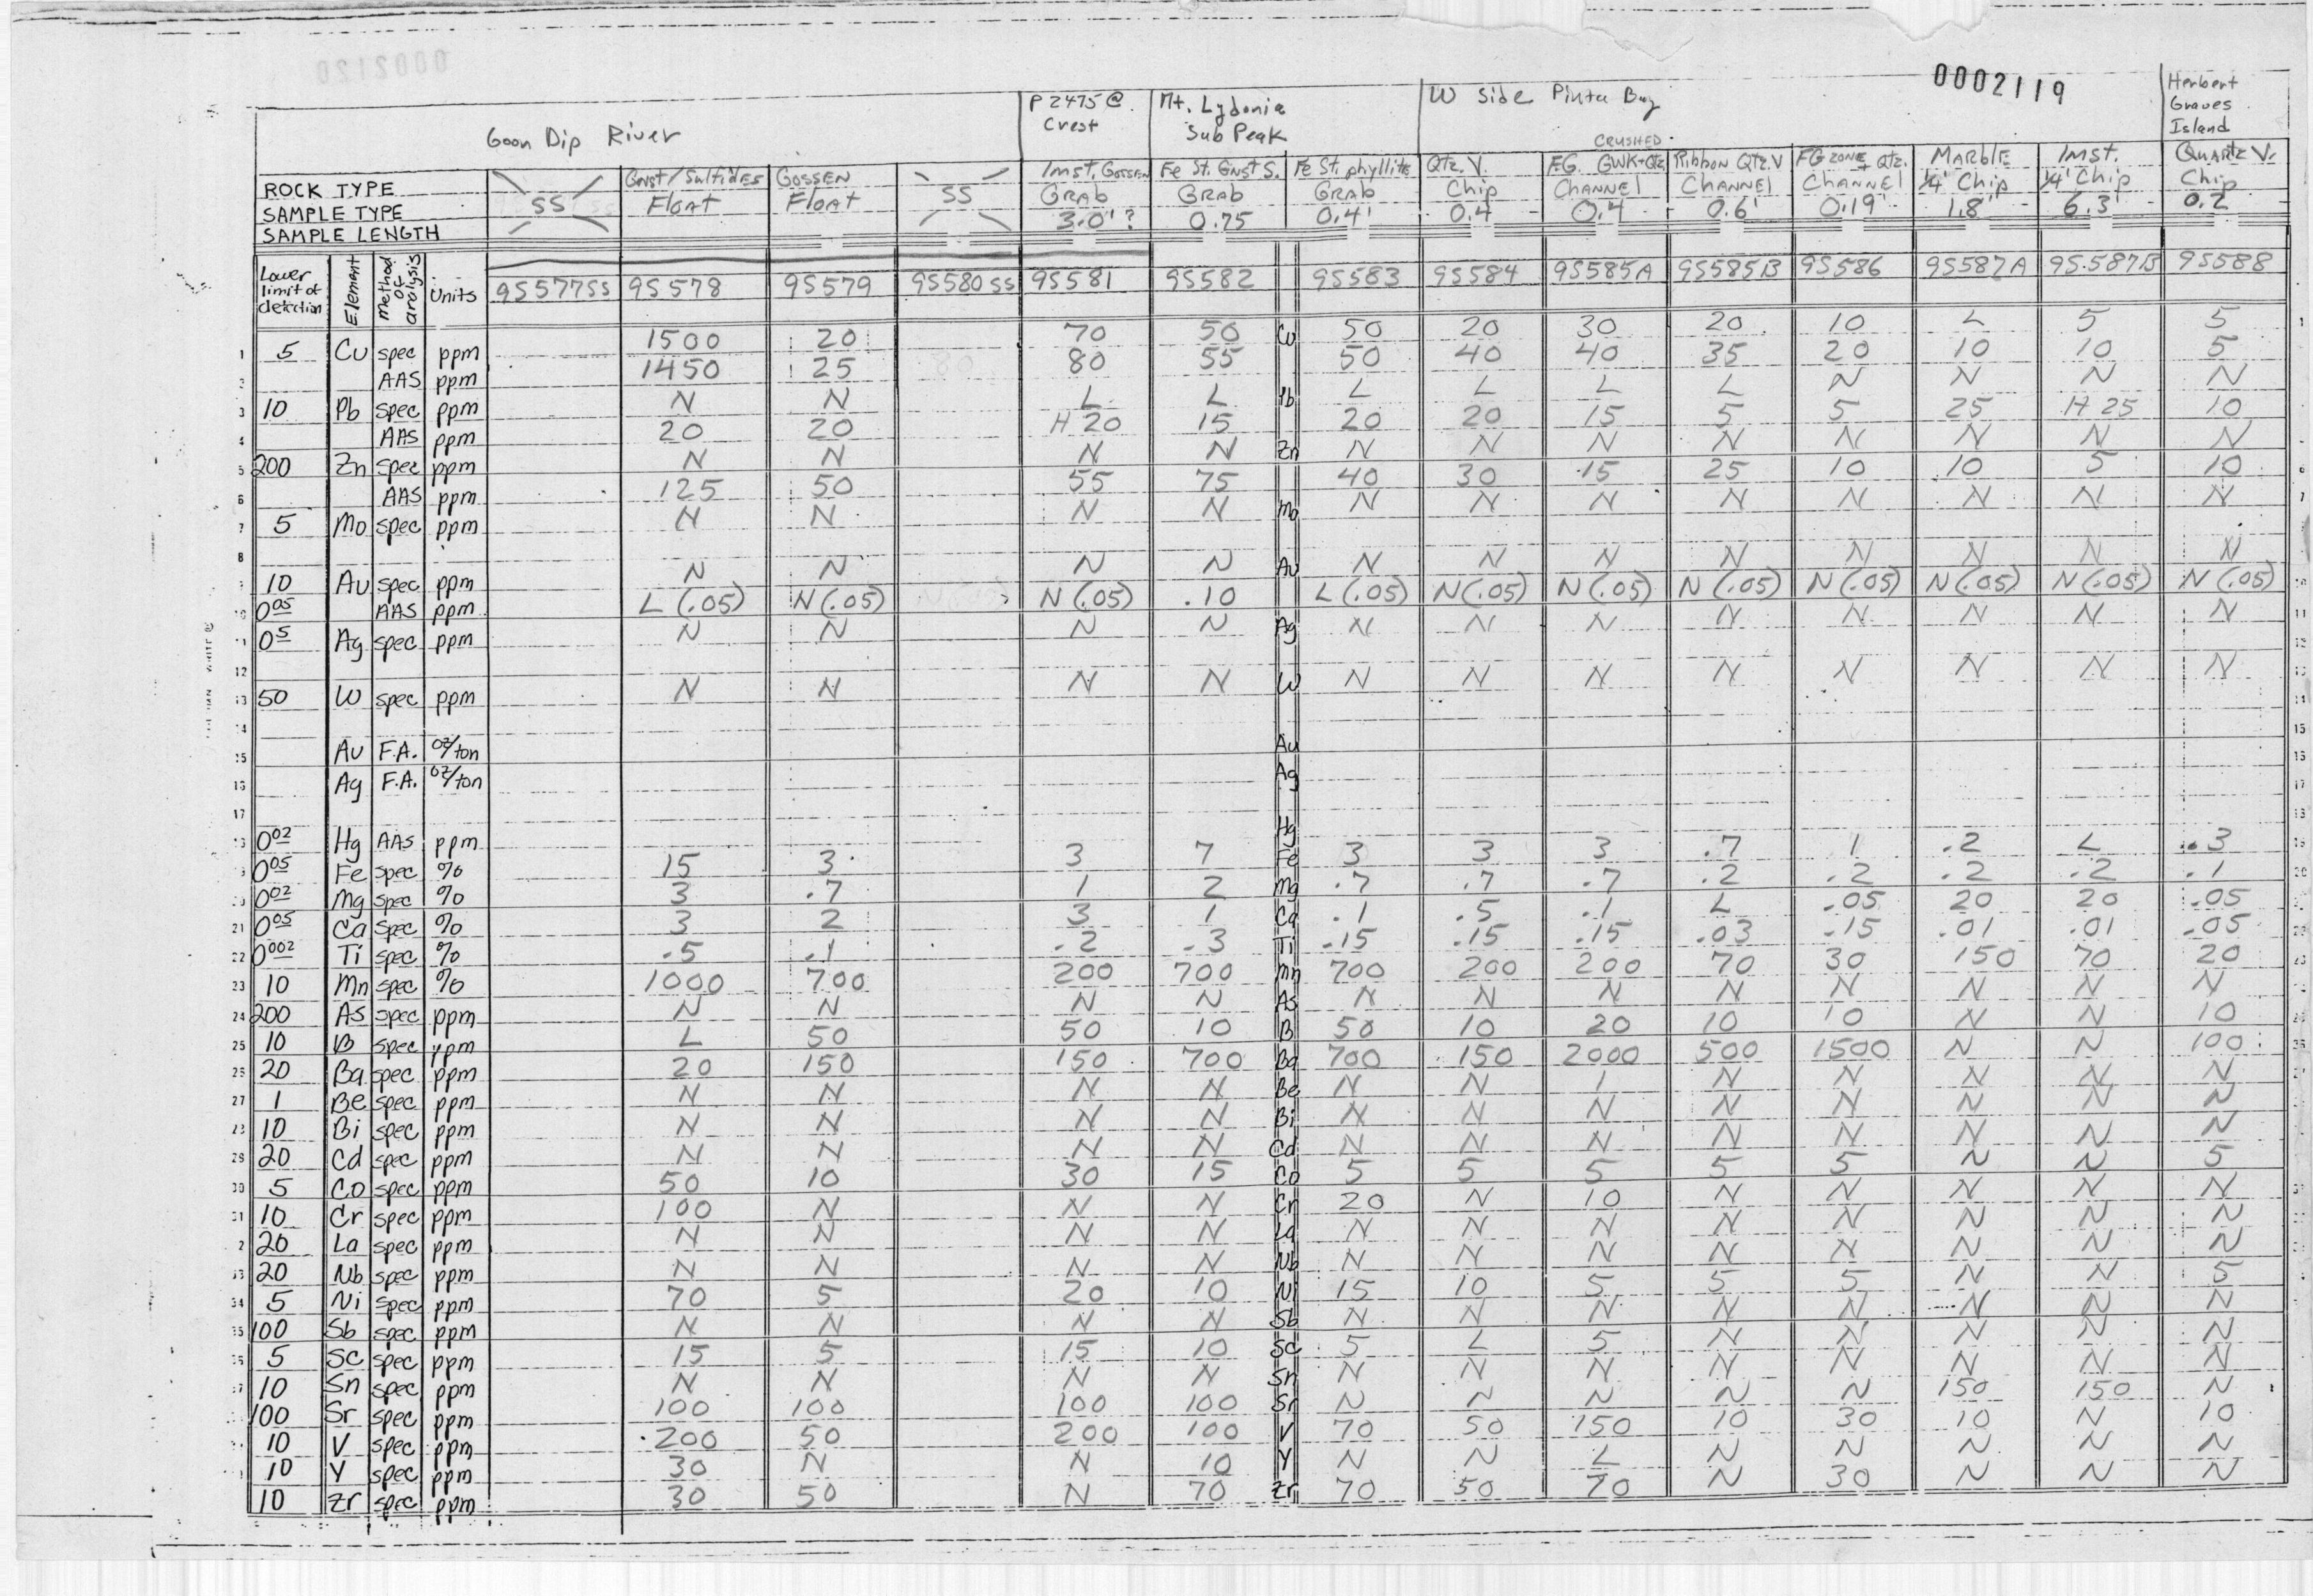 0002120
0002119
Goon Dip River | P2475 @ Crest | Mt. Lydonia Sub Peak | W Side Pinta Bay | Herbert Graves Island
CRUSHED
ROCK TYPE | SS | Gnst/Sulfides | Gossen | SS | lmst. Gossen | Fe St. Gnst S. | Fe St. phyllite | Qtz. V. | F.G. GWK+Qtz | Ribbon Qtz. V | FG zone + Qtz. | Marble | lmst. | Quartz V.
SAMPLE TYPE | Float | Float | Grab | Grab | Grab | Chip | Channel | Channel | Channel | 1/4' Chip | 1/4' Chip | Chip
SAMPLE LENGTH | 3.0'? | 0.75 | 0.4' | 0.4 | 0.4 | 0.6' | 0.19' | 1.8' | 6.3' | 0.2
Lower limit of detection | Element | Method of analysis | Units | 9S577SS | 9S578 | 9S579 | 9S580SS | 9S581 | 9S582 | 9S583 | 9S584 | 9S585A | 9S585B | 9S586 | 9S587A | 9S587B | 9S588
1 | 5 | Cu | spec | ppm | 1500 | 20 | 70 | 50 | Cu | 50 | 20 | 30 | 20 | 10 | L | 5 | 5
2 | AAS | ppm | 1450 | 25 | 80 | 55 | 50 | 40 | 40 | 35 | 20 | 10 | 10 | 5
3 | 10 | Pb | spec | ppm | N | N | L | L | Pb | L | L | L | L | N | N | N | N
4 | AAS | ppm | 20 | 20 | H 20 | 15 | 20 | 20 | 15 | 5 | 5 | 25 | H 25 | 10
5 | 200 | Zn | spec | ppm | N | N | N | N | Zn | N | N | N | N | N | N | N | N
6 | AAS | ppm | 125 | 50 | 55 | 75 | 40 | 30 | 15 | 25 | 10 | 10 | 5 | 10
7 | 5 | Mo | spec | ppm | N | N | N | N | Mo | N | N | N | N | N | N | N | N
8
9 | 10 | Au | spec | ppm | N | N | N | N | Au | N | N | N | N | N | N | N | N
10 | 0.05 | AAS | ppm | L (.05) | N (.05) | N (.05) | .10 | L (.05) | N (.05) | N (.05) | N (.05) | N (.05) | N (.05) | N (.05) | N (.05)
11 | 0.5 | Ag | spec | ppm | N | N | N | N | Ag | N | N | N | N | N | N | N | N
12
13 | 50 | W | spec | ppm | N | N | N | N | W | N | N | N | N | N | N | N | N
14
15 | Au | F.A. | oz/ton | Au
16 | Ag | F.A. | oz/ton | Ag
17
18 | 0.02 | Hg | AAS | ppm | Hg
0.05 | Fe | spec | % | 15 | 3 | 3 | 7 | Fe | 3 | 3 | 3 | .7 | 1 | .2 | L | .3
0.02 | Mg | spec | % | 3 | .7 | 1 | 2 | Mg | .7 | .7 | .7 | .2 | .2 | .2 | .2 | .1
21 | 0.05 | Ca | spec | % | 3 | 2 | 3 | 1 | Ca | .1 | .5 | .1 | L | .05 | 20 | 20 | .05
22 | 0.002 | Ti | spec | % | .5 | .1 | .2 | .3 | Ti | .15 | .15 | .15 | .03 | .15 | .01 | .01 | .05
23 | 10 | Mn | spec | % | 1000 | 700 | 200 | 700 | Mn | 700 | 200 | 200 | 70 | 30 | 150 | 70 | 20
24 | 200 | As | spec | ppm | N | N | N | N | As | N | N | N | N | N | N | N | N
25 | 10 | B | spec | ppm | L | 50 | 50 | 10 | B | 50 | 10 | 20 | 10 | 10 | N | N | 10
26 | 20 | Ba | spec | ppm | 20 | 150 | 150 | 700 | Ba | 700 | 150 | 2000 | 500 | 1500 | N | N | 100
27 | 1 | Be | spec | ppm | N | N | N | N | Be | N | N | 1 | N | N | N | N | N
28 | 10 | Bi | spec | ppm | N | N | N | N | Bi | N | N | N | N | N | N | N | N
29 | 20 | Cd | spec | ppm | N | N | N | N | Cd | N | N | N | N | N | N | N | N
30 | 5 | Co | spec | ppm | 50 | 10 | 30 | 15 | Co | 5 | 5 | 5 | 5 | 5 | N | N | 5
31 | 10 | Cr | spec | ppm | 100 | N | N | N | Cr | 20 | N | 10 | N | N | N | N | N
2 | 20 | La | spec | ppm | N | N | N | N | La | N | N | N | N | N | N | N | N
33 | 20 | Nb | spec | ppm | N | N | N | N | Nb | N | N | N | N | N | N | N | N
34 | 5 | Ni | spec | ppm | 70 | 5 | 20 | 10 | Ni | 15 | 10 | 5 | 5 | 5 | N | N | 5
35 | 100 | Sb | spec | ppm | N | N | N | N | Sb | N | N | N | N | N | N | N | N
5 | Sc | spec | ppm | 15 | 5 | 15 | 10 | Sc | 5 | L | 5 | N | N | N | N | N
10 | Sn | spec | ppm | N | N | N | N | Sn | N | N | N | N | N | N | N | N
100 | Sr | spec | ppm | 100 | 100 | 100 | 100 | Sr | N | N | N | N | N | 150 | 150 | N
10 | V | spec | ppm | 200 | 50 | 200 | 100 | V | 70 | 50 | 150 | 10 | 30 | 10 | N | 10
10 | Y | spec | ppm | 30 | N | N | 10 | Y | N | N | L | N | N | N | N | N
10 | Zr | spec | ppm | 30 | 50 | N | 70 | Zr | 70 | 50 | 70 | N | 30 | N | N | N